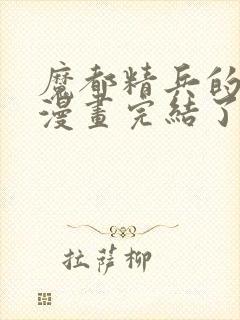 魔都精兵的
漫畫完結了
拉薩柳